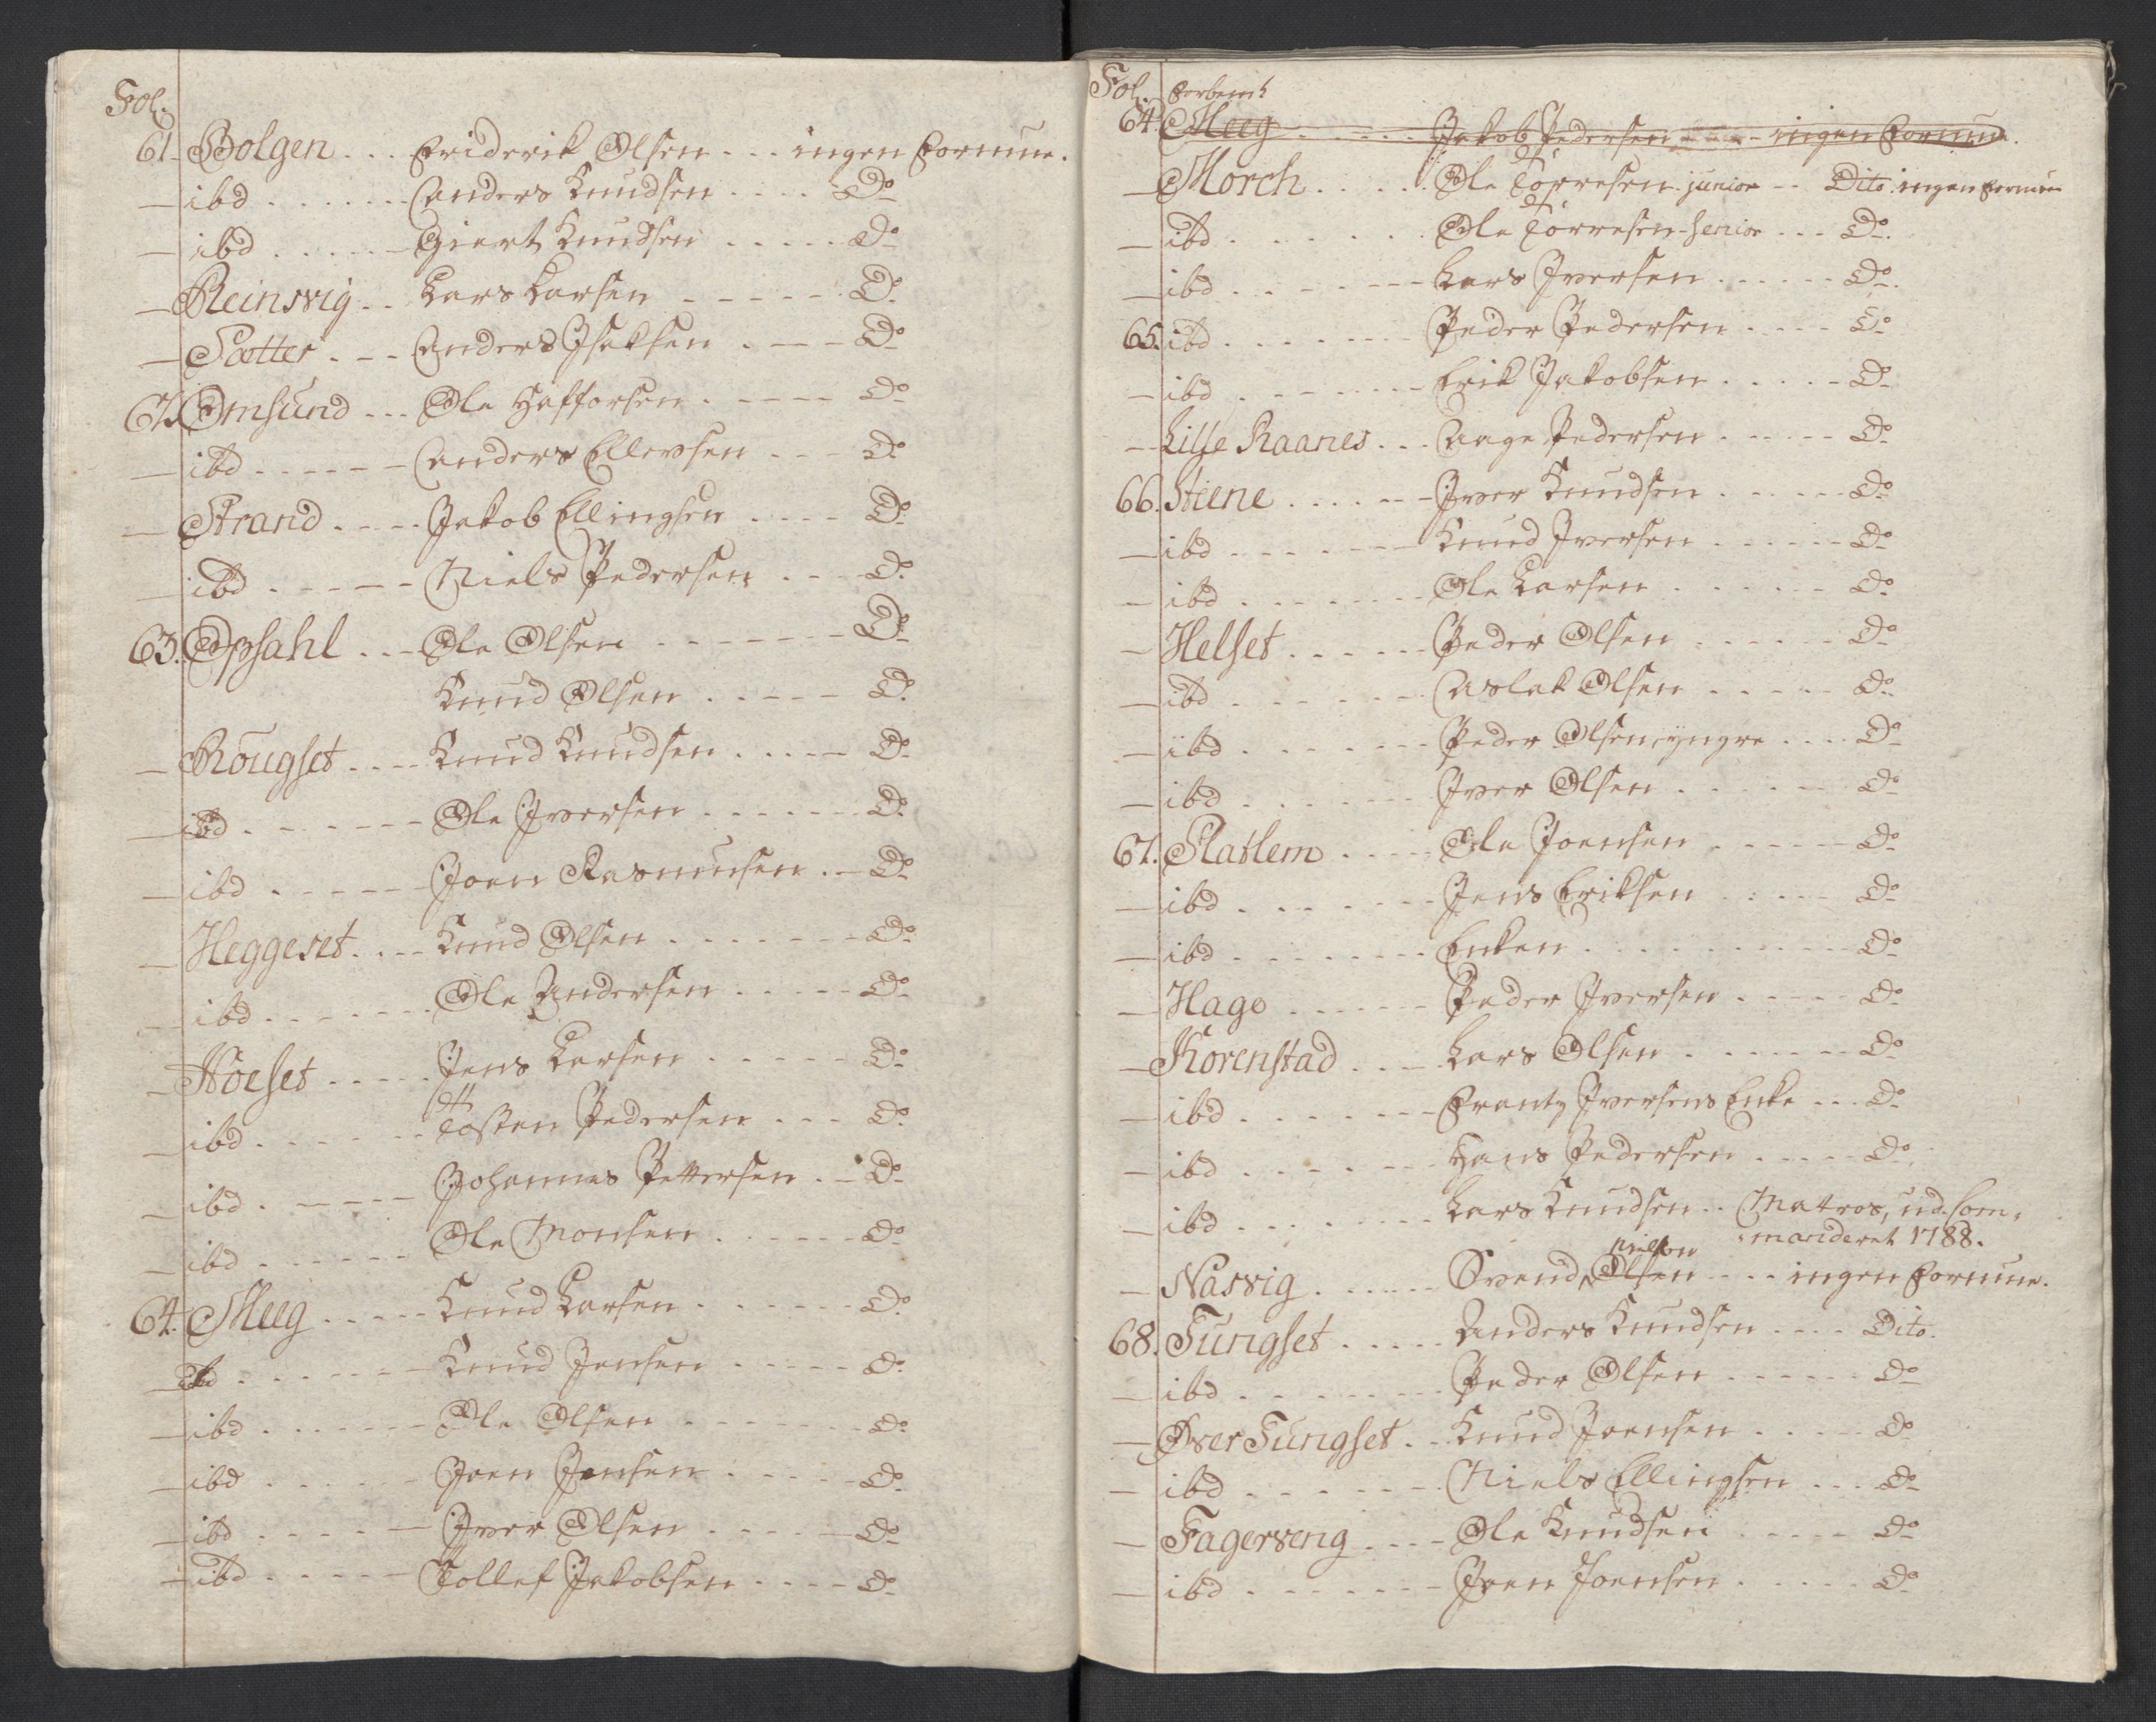 Fol.
61. Bolgen . . . Friderik Olsen . . . ingen Formue.
— ibd . . . . . . Anders Knudsen . . . . Do
— ibd . . . . . — Giert Knudsen . . . . . Do
— Reinsvig . . Lars Larsen - - - - - - Do
— Sætter . - - Anders Isaksen . - - - Do
62. Omsund . . . Ole Hafforsen . - - - - Do
— ibd - - - - - - Anders Ellevsen - - - Do
— Strand . - - . Jakob Ellingsen . - - - Do
— ibd . - - - - - Niels Pedersen . - - Do
63. Opsahl . . . Ole Olsen - - - - - - - Do
Knud Olsen . - - - - Do
— Rougset . - - . Knud Knudsen . - - - - Do
— ibd . - - - - - - Ole Iversen . . . . . . . Do
— ibd . - - - - - Joen Rasmusen . - Do
— Heggeset . - - - Knud Olsen . - - - - - - Do
— ibd . - - - - - . Ole Andersen . - - - - Do
— Höeset . - - - - Jens Larsen . . - - - - Do
— ibd . - - - - - . Tosten Pedersen - - - Do
— ibd . - - - - - Johannes Pettersen . - Do
— ibd . - - - - - Ole Monsen . - - - - - Do
64. Meeg . . . - - Knud Larsen . - - - - - Do
— ibd . - - - - - - Knud Jensen . - - - - Do
— ibd . - - - - - - Ole Olsen - - - - - - - Do
— ibd . - - - - - Joen Jensen . - - - - Do
— ibd . - - - - - Iver Olsen . - - - - Do
— ibd . - - - - Tollef Jakobsen . - - - Do
Fol.
64. Meeg . . . . . Jakob Pedersen . . . . ingen Formue.
— Morch . . . . . Ole Törresen junior - - Dito ingen Formue
— ibd . . . . . . . Ole Törresen senior - - - Do
— ibd . . . . - - - Lars Iversen . . . . . . Do
65. ibd . . . . . - - Peder Pedersen . . . . - Do
— ibd . . . . . - - Erik Jakobsen . . . . - Do
— Lille Raanes . . . Aage Pedersen . - - - - Do
66. Stene . . . . - - Iver Knudsen . . . . - - Do
— ibd . - - - - - - Knud Iversen . . . . - - Do
— ibd . . . . . - - Ole Larsen . . . . - - Do
— Helset . . . . - - Peder Olsen . . . . - - Do
— ibd . . . . . . . Aslak Olsen . . . . - Do
— ibd . . . . . - - Peder Olsen yngre . . . . Do
— ibd . . . . . - - Iver Olsen . . . . - - Do
67. Slatlem . . . . . Ole Joensen . . . . - - Do
— ibd . . . . . - - Jens Eriksen . . . . - Do
— ibd . . . . . - - Enken . . . . . . . . - - Do
— Hage . . . . - - Peder Iversen . . . . - Do
— Korenstad . . - Lars Olsen . . . . . - - Do
— ibd . . . . . - - Frantz Iversens Enke . . . Do
— ibd . . . . . - - Hans Pedersen . . . . - Do
— ibd . . . . . - - Lars Knudsen . . Matros, ud-Com-
manderet 1788.
Nielsen
— Nasvig . . . . . . Svend Olsen . . . . ingen Formue.
68. Fungset . . . . . Anders Knudsen . . . . Dito.
— ibd . . . . . - - Peder Olsen . . . . . - Do
— Øver Fungset . . Knud Joensen . . . . - Do
— ibd . . . . . - - Niels Ellingsen . . . Do
— Fagerveng . . . - Ole Knudsen . . . . - Do
— ibd . . . . . - - Joen Joensen . . . . - Do